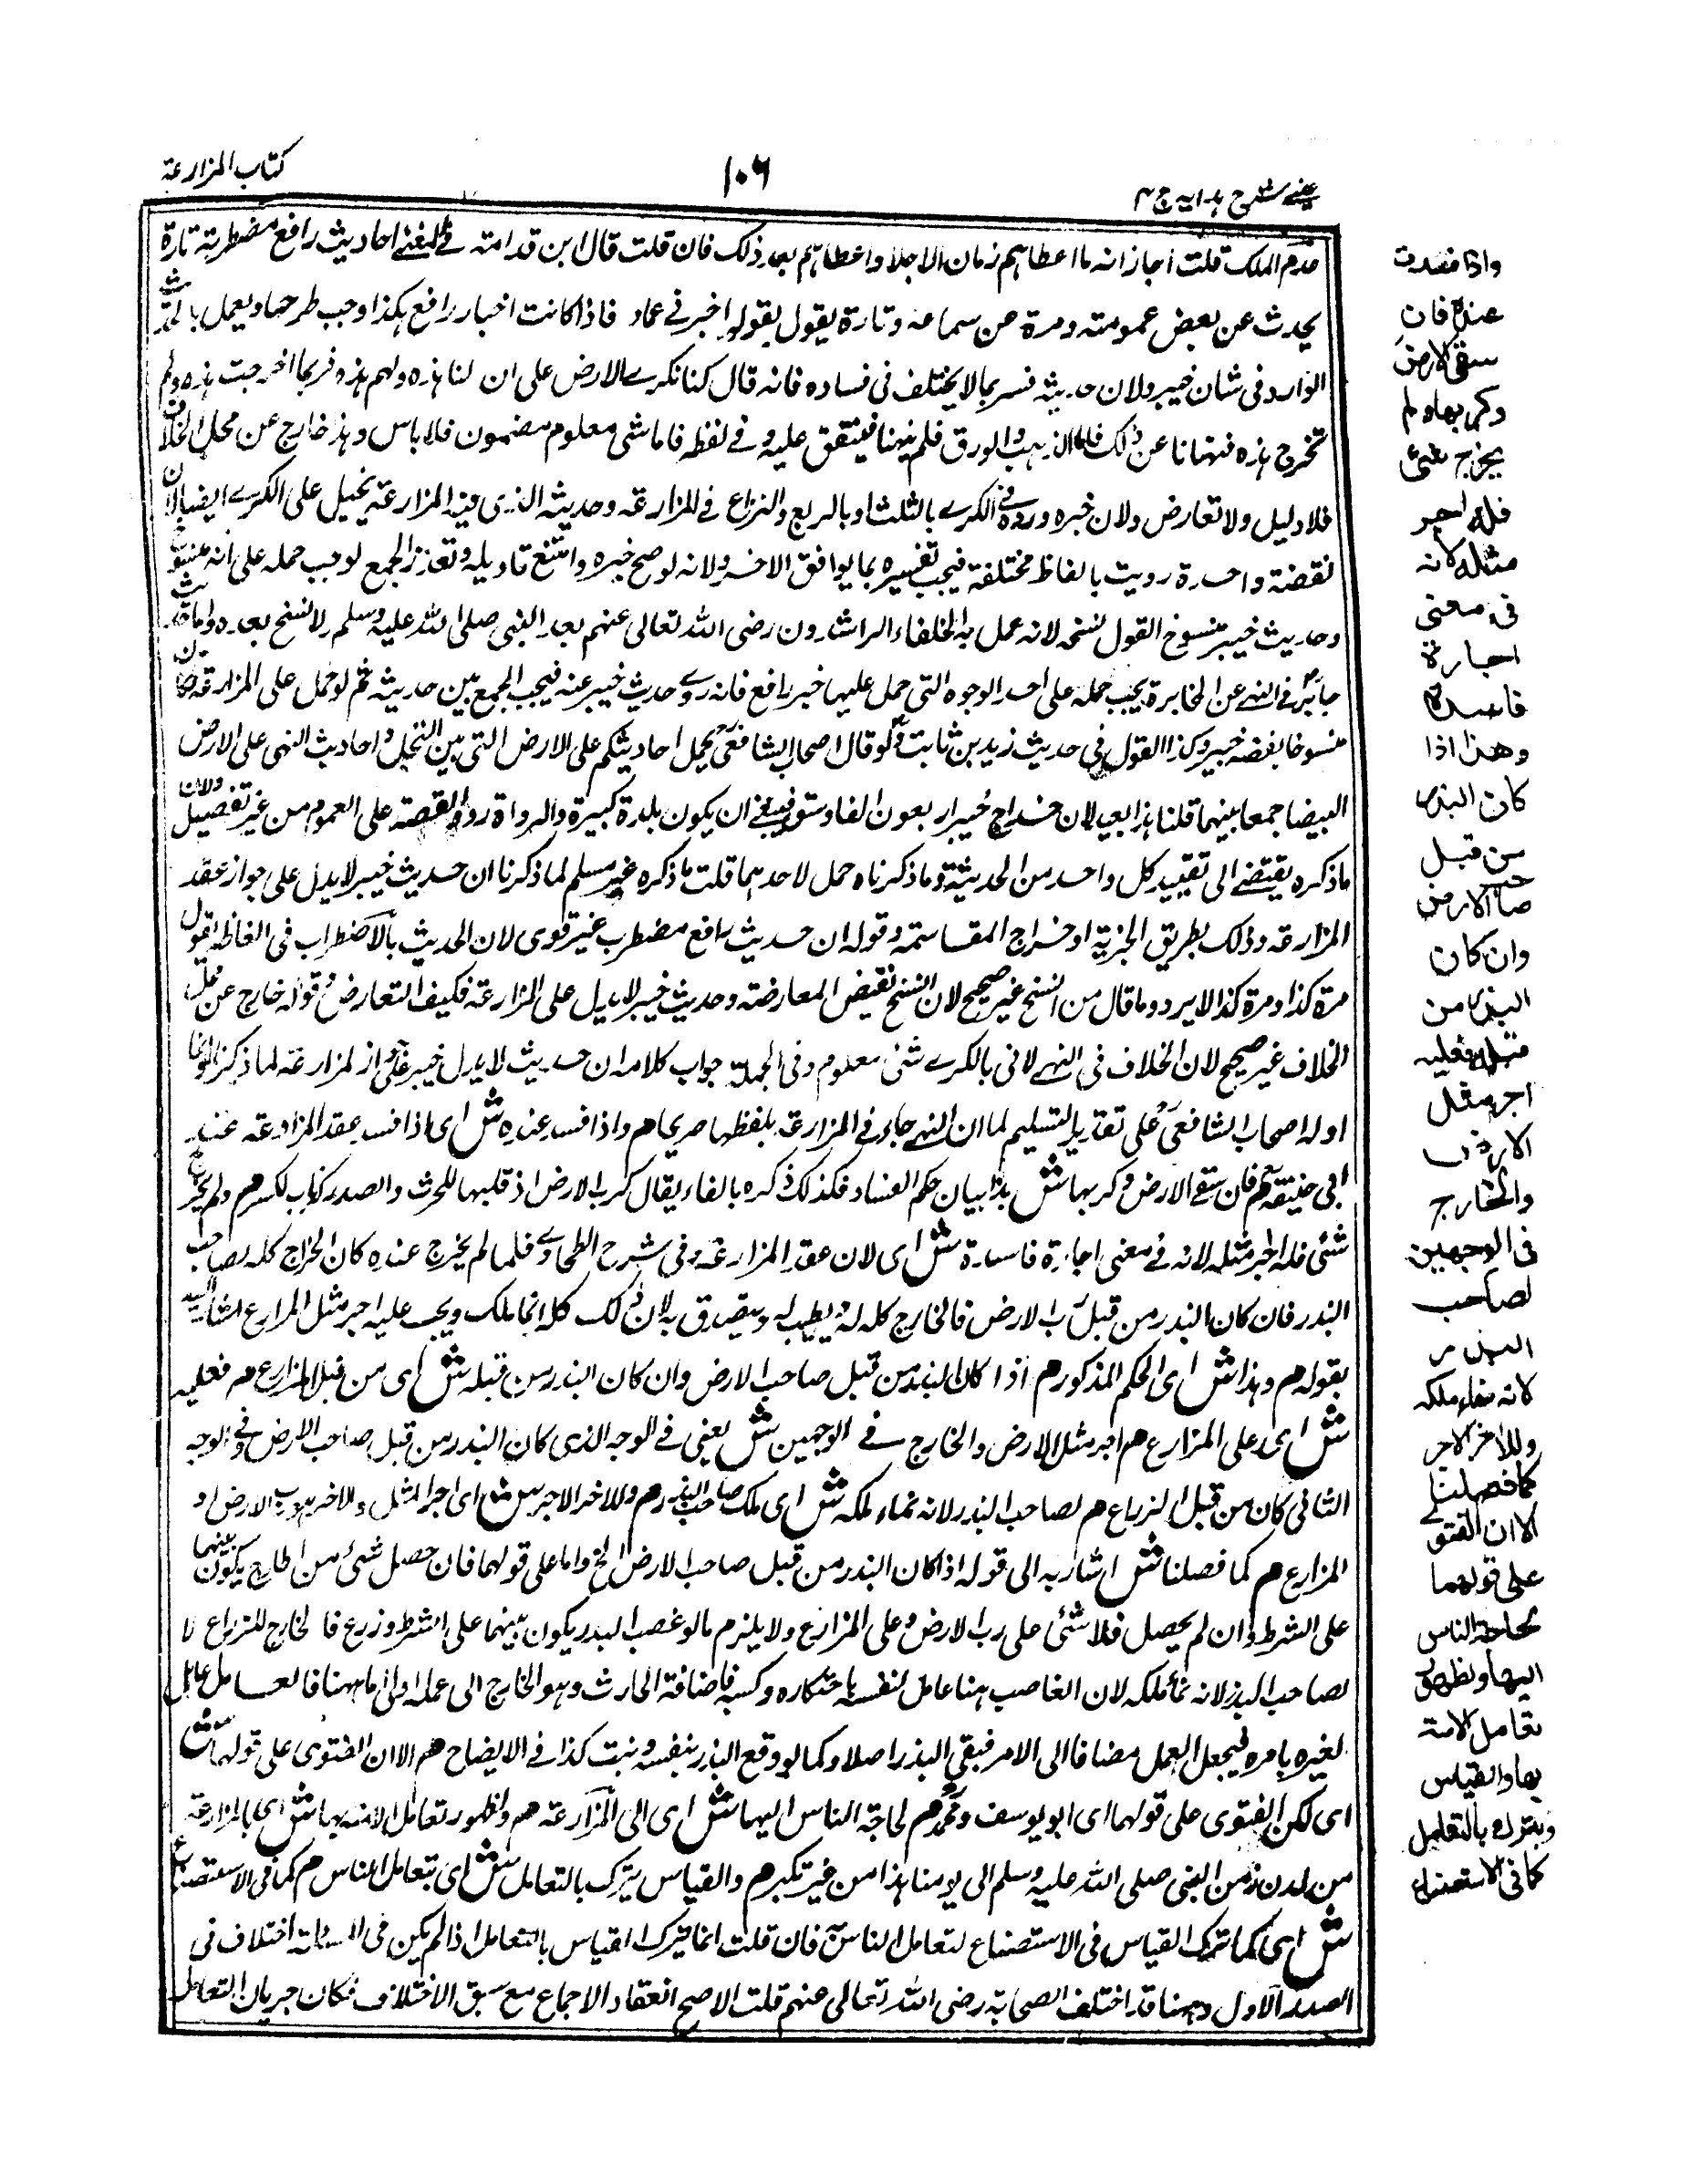 عينى شرح هدايه ج ٣
١٠٦
كتاب المزارعة
عدم الملك قلت اجاز انه ما اعطاهم زمان الاجلاء واعطاهم بعد ذلك فان قلت قال ابن قدامة فى المغنى احاديث رافع مضطربة تارة
يحدث عن بعض عمومته ومرة عن سماعه وتارة يقول بقوله اخبرنى عماد فاذا كانت اخبار رافع هكذا وجب طرحها ويعمل بالحديث
الوارد فى شان خيبر ولان حديثه فسر بما لا يختلف فى فساده فانه قال كنا نكرى الارض على ان لنا هذه ولهم هذه وفربما اخرجت هذه ولم
تخرج هذه فنهانا عن ذلك فاما الذهب والورق فلم ينهنا فيتفق عليه و فى لفظه فاما شئ معلوم مضمون فلا باس وهذا خارج عن محل الخلاف
فلا دليل ولا تعارض ولان خبره ورده فى الكرى بالثلث او بالربع والنزاع فى المزارعة وحديثه الذى فيه المزارعة يحيل على الكرى ايضا لان
نقضة واحدة رويت بالفاظ مختلفة فيجب تفسيره بما يوافق الاخر ولانه لو صح خبره وامتنع تاويله وتعذر الجمع لوجب حمله على انه منسوخ
وحديث خيبر منسوخ القول لنسخه لانه عمل به الخلفاء الراشدون رضى الله تعالى عنهم بعد النبى صلى الله عليه وسلم لا نسخ بعده واما حديث
جابر فى النهى عن المخابرة يجب حمله على احد الوجوه التى حمل عليها خبر رافع فانه روى حديث خيبر عنه فيجب الجمع بين حديثه ثم لو حمل على المزارعة كان
منسوخا بقضة خيبر وكذا القول فى حديث زيد بن ثابت ولو قال اصحاب الشافعى يحمل احاديثكم على الارض التى بين النخيل واحاديث النهى على الارض
البيضا جمعا بينهما قلنا هذا بعيد لان خراج خيبر اربعون الفا وستوق فينبغى ان يكون بلدة كبيرة والرواة رووا القصة على العموم من غير تفصيل ولان
ما ذكره يقتضى الى تقييد كل واحد من الحديثين وما ذكرناه حمل لاحدهما قلت ما ذكره غير مسلم لما ذكرنا ان حديث خيبر لا يدل على جواز عقد
المزارعة وذلك بطريق الجزية او خراج المقاسمة وقوله ان حديث رافع مضطرب غير قوى لان الحديث بالاضطراب فى الفاظه يقول
مرة كذا ومرة كذا لا يرد وما قال من النسخ غير صحيح لان النسخ نقيض المعارضة وحديث خيبر لا يدل على المزارعة فكيف التعارض وقوله خارج عن محل
الخلاف غير صحيح لان الخلاف فى النهى لا فى بالكرى شئ معلوم وفى الجملة جواب كلامه ان حديث لا يدل خيبر على جواز المزارعة لما ذكرنا
اوله اصحاب الشافعى على تقدير التسليم لما ان النهى جاء فى المزارعة بلفظها صريحا هم واذا فسد عنده ش اى اذا فسد عقد المزارعة عند
ابى حنيفة هم فان سقى الارض وكربها ش هذا بيان حكم الفساد فكذلك ذكره بالفاء يقال كرب الارض اذ قلبها للحرث والصدر كراب بكسر هم ولم يخرج
شئى فله اجر مثله لانه فى معنى اجارة فاسدة ش اى لان عقد المزارعة وفى شرح الطحاوى فلما لم يخرج عنده كان الخراج كله لصاحب
البذر فان كان البذر من قبل رب الارض فالخارج كله له يطيب له ويتصدق به لان ذلك كله انما ملك ويجب عليه اجر مثل المزارع اشار اليه
بقوله هم وهذا ش اى الحكم المذكور هم اذا كان البذر من قبل صاحب الارض وان كان البذر من قبله ش اى من قبل المزارع هم فعليه
ش اى على المزارع هم اجر مثل الارض والخارج فى الوجهين ش يعنى فى الوجه الذى كان البذر من قبل صاحب الارض وفى الوجه
الثانى كان من قبل الزراع هم لصاحب البذر لانه نماء ملكه ش اى ملك صاحب البذر هم وللاخر الاجر ش اى اجر المثل والاخر هو رب الارض او
المزارع هم كما فصلنا ش اشار به الى قوله اذا كان البذر من قبل صاحب الارض الخ واما على قولهما فان حصل شئ من الخارج يكون بينهما
على الشرط وان لم يحصل فلا شئى على رب الارض وعلى المزارع ولا يلزم ما لو غصب البذر يكون بينهما على الشرط وزرع فالخارج للزراع لا
لصاحب البذر لانه نماء ملكه لان الغاصب هنا عامل لنفسه باحتكاره وكسبه فاضافة الحارث وهو الخارج الى عمله اولى اما ههنا فالعامل عامل
لغيره بامره فيجعل العمل مضافا الى الامر فبقى البذر اصلا وكما لو وقع البذر بنفسه ونبت كذا فى الايضاح هم الا ان الفتوى على قولهما ش
اى لكن الفتوى على قولهما اى ابو يوسف ومحمد هم لحاجة الناس اليها ش اى الى المزارعة هم ولظهور تعامل الامة بها ش اى بالمزارعة
من لدن زمن النبى صلى الله عليه وسلم الى يومنا هذا من غير نكير هم والقياس يترك بالتعامل ش اى بتعامل الناس هم كما فى الاستصناع
ش اى كما ترك القياس فى الاستصناع لتعامل الناس فان قلت انما يترك القياس بالتعامل اذا لم يكن فى المسالة اختلاف فى
الصدر الاول وههنا قد اختلف الصحابة رضى الله تعالى عنهم قلت الاصح انعقاد الاجماع مع سبق الاختلاف فكان جريان التعامل
واذا فسدت
عنده فان
سقى الارض
وكربها ولم
يخرج شئ
فله اجر
مثله لانه
فى معنى
اجارة
فاسدة
وهذا اذا
كان البذر
من قبل
صاحب الارض
وان كان
البذر من
قبله فعليه
اجر مثل
الارض
والخارج
فى الوجهين
لصاحب
البذر
لانه نماء ملكه
وللاخر الاجر
كما فصلنا
الا ان الفتوى
على قولهما
لحاجة الناس
اليها ولظهور
تعامل الامة
بها والقياس
يترك بالتعامل
كما فى الاستصناع